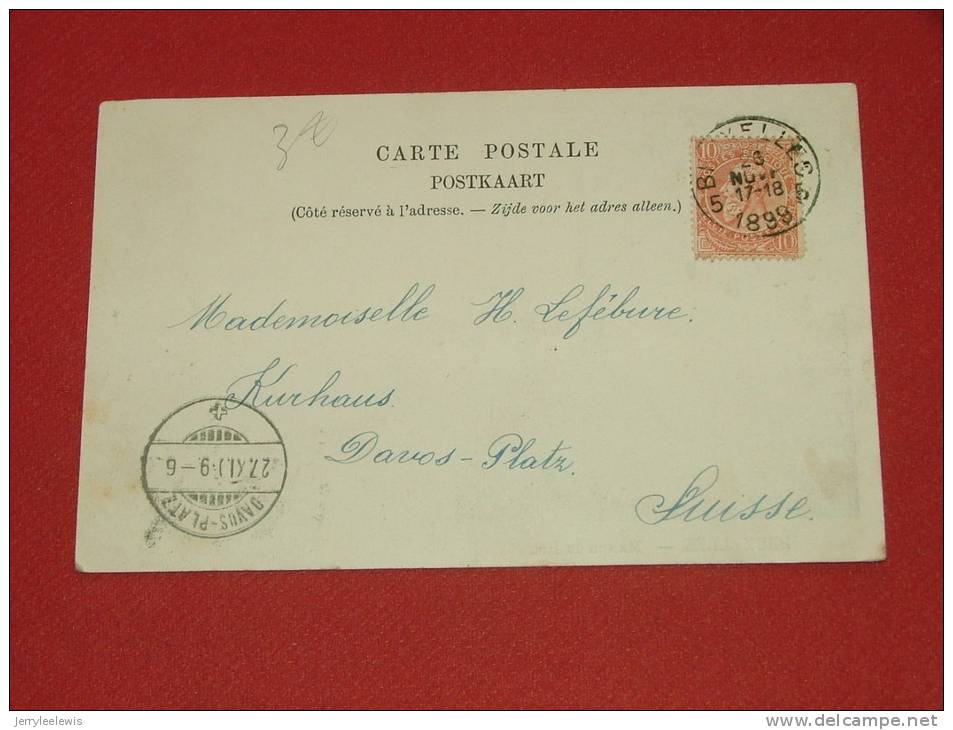 CARTE POSTALE
POSTKAART
(Côté réservé à l'adresse. — Zijde voor het adres alleen.)
10
10
5 5
NOV
17-18
1898
Mademoiselle H. Lefébure.
Kurhaus.
Davos-Platz.
Suisse.
27.XI. 9-6
DAVOS-PLATZ
jerryleelewis
http://www.delcampe.net